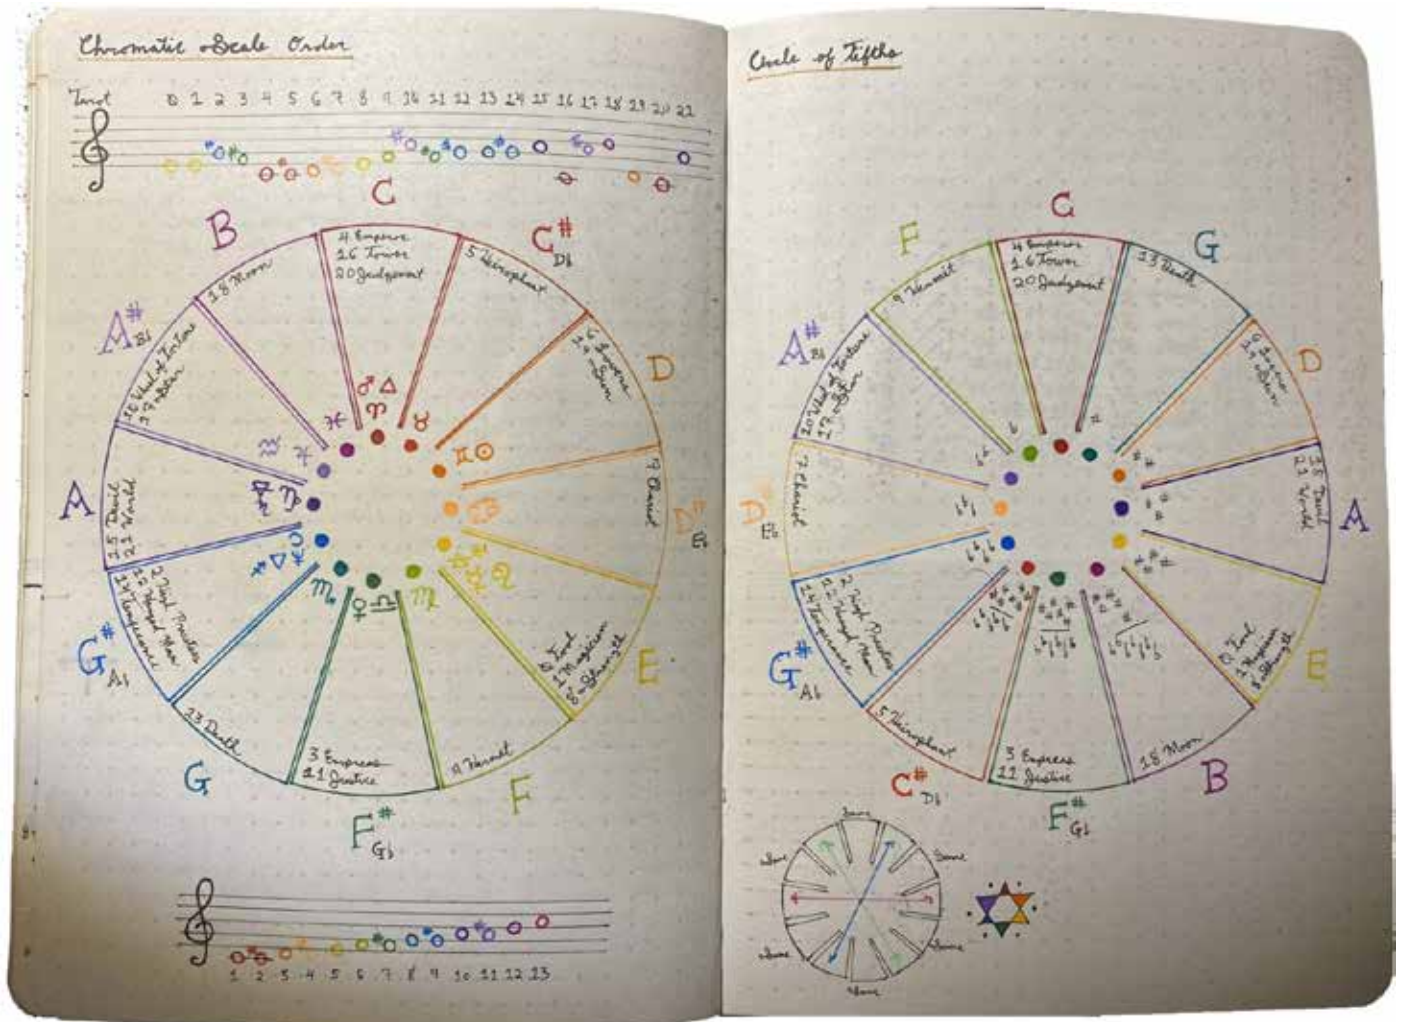 Chromatic Scale Order
Tarot 0 1 2 3 4 5 6 7 8 9 10 11 12 13 14 15 16 17 18 19 20 21
C
4 Emperor
16 Tower
20 Judgement
C#
Db
5 Heirophant
D
6 Lovers
19 Sun
D#
Eb
7 Chariot
E
0 Fool
1 Magician
8 Strength
F
9 Hermit
F#
Gb
3 Empress
11 Justice
G
13 Death
G#
Ab
2 High Priestess
12 Hanged Man
14 Temperance
A
15 Devil
21 World
A#
Bb
10 Wheel of Fortune
17 Star
B
18 Moon
♂ △
♈
♉
♊ ☉
♋
♌
♍
♀ ♎
♏
♑
♒
♓
1 2 3 4 5 6 7 8 9 10 11 12 13
Circle of Fifths
C
4 Emperor
16 Tower
20 Judgement
G
13 Death
D
6 Lovers
19 Sun
A
15 Devil
21 World
E
0 Fool
1 Magician
8 Strength
B
18 Moon
F#
Gb
3 Empress
11 Justice
C#
Db
5 Heirophant
G#
Ab
2 High Priestess
12 Hanged Man
14 Temperance
D#
Eb
7 Chariot
A#
Bb
10 Wheel of Fortune
17 Star
F
9 Hermit
Same
Same
Same
Same
Same
Same